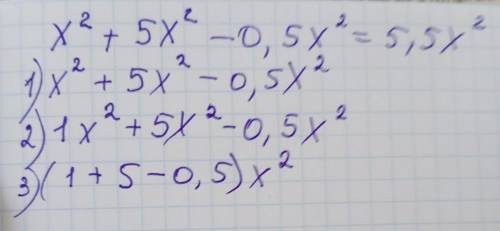 x² + 5x² - 0,5x² = 5,5x²
1) x² + 5x² - 0,5x²
2) 1x² + 5x² - 0,5x²
3) (1 + 5 - 0,5)x²